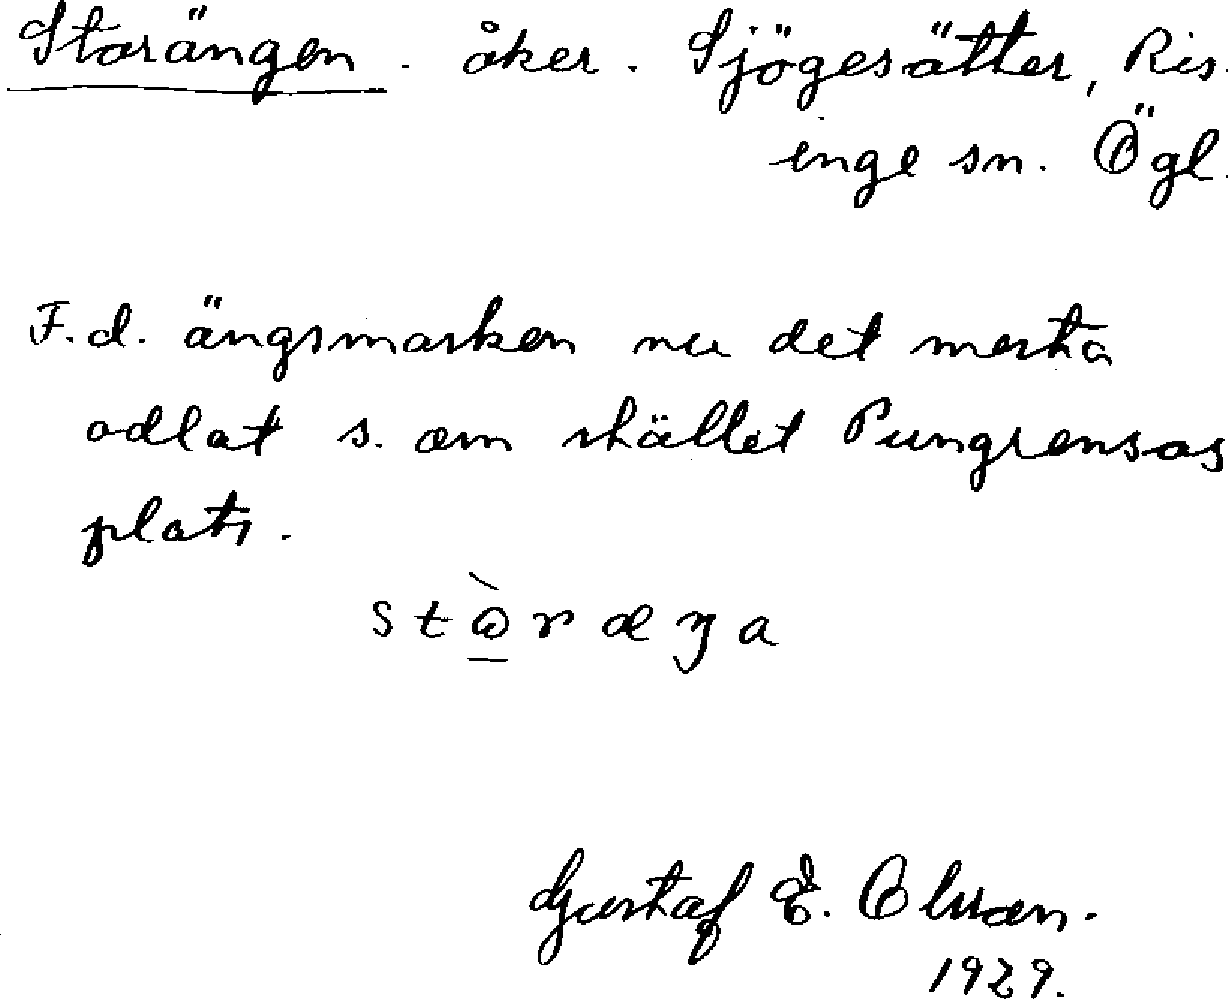 Storängen. åker. Sjögesätter, Ris-
inge sn. Ögl.
F.d. ängsmarken nu det mesta
odlat s. om stället Pungrensas
plats.
stò̱ræŋa
Gustaf E. Olsson.
1929.